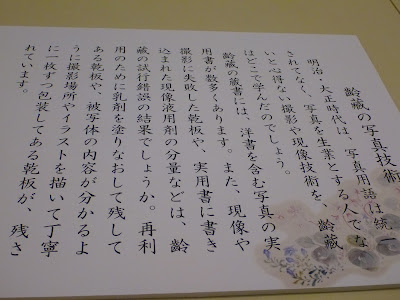 齢蔵の写真技術
明治・大正時代は、写真用語は統一
されてなく、写真を生業とする人でな
いと心得ない撮影や現像技術を、齢蔵
はどこで学んだのでしょう。
齢蔵の蔵書には、洋書を含む写真の実
用書が数多くあります。また、現像や
撮影に失敗した乾板や、実用書に書き
込まれた現像液用剤の分量などは、齢
蔵の試行錯誤の結果でしょうか。再利
用のために乳剤を塗りなおして残して
ある乾板や、被写体の内容が分かるよ
うに撮影場所やイラストを描いて丁寧
に一枚ずつ包装してある乾板が、残さ
れています。